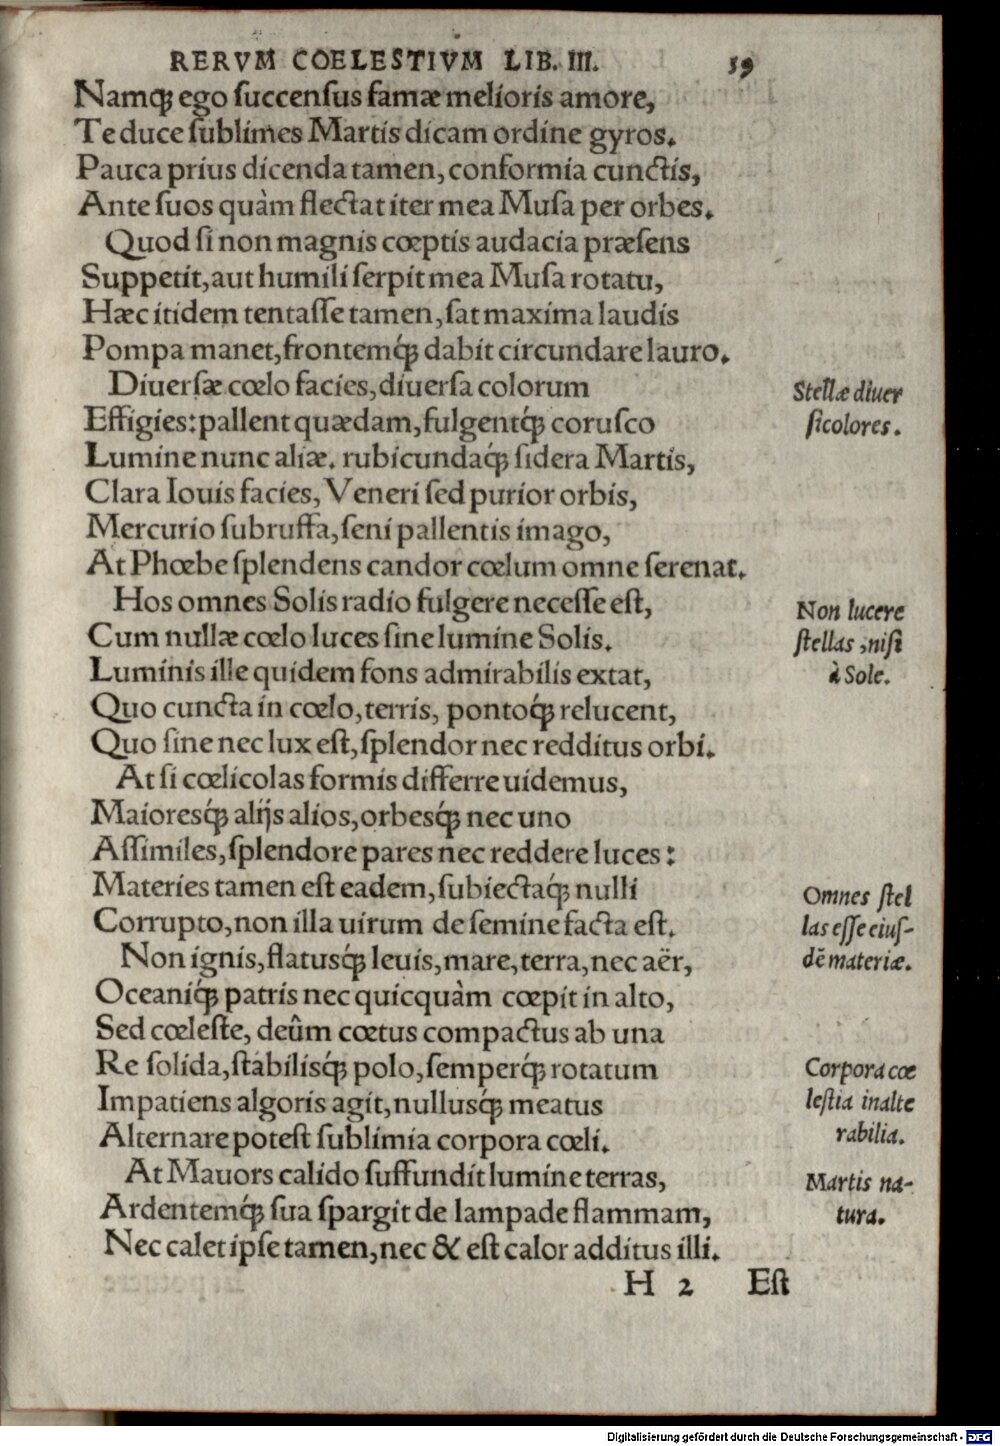 RERVM COELESTIVM LIB. III. 59
Namq́ȝ ego ſuccenſus famæ melioris amore,
Te duce ſublimes Martis dicam ordine gyros.
Pauca prius dicenda tamen, conformia cunctis,
Ante ſuos quàm flectat iter mea Muſa per orbes.
Quod ſi non magnis cœptis audacia præſens
Suppetit, aut humili ſerpit mea Muſa rotatu,
Hæc itidem tentaſſe tamen, ſat maxima laudis
Pompa manet, frontemq́ȝ dabit circundare lauro.
Diuerſæ cœlo facies, diuerſa colorum
Effigies: pallent quædam, fulgentq́ȝ coruſco
Lumine nunc aliæ. rubicundaq́ȝ ſidera Martis,
Clara Iouis facies, Veneri ſed purior orbis,
Mercurio ſubruffa, ſeni pallentis imago,
At Phœbe ſplendens candor cœlum omne ſerenat.
Hos omnes Solis radio fulgere neceſſe eſt,
Cum nullæ cœlo luces ſine lumine Solis.
Luminis ille quidem fons admirabilis extat,
Quo cuncta in cœlo, terris, pontoq́ȝ relucent,
Quo ſine nec lux eſt, ſplendor nec redditus orbi.
At ſi cœlicolas formis differre uidemus,
Maioresq́ȝ alijs alios, orbesq́ȝ nec uno
Aſſimiles, ſplendore pares nec reddere luces:
Materies tamen eſt eadem, ſubiectaq́ȝ nulli
Corrupto, non illa uirum de ſemine facta eſt.
Non ignis, flatusq́ȝ leuis, mare, terra, nec aër,
Oceaniq́ȝ patris nec quicquàm cœpit in alto,
Sed cœleſte, deûm cœtus compactus ab una
Re ſolida, ſtabilisq́ȝ polo, ſemperq́ȝ rotatum
Impatiens algoris agit, nullusq́ȝ meatus
Alternare poteſt ſublimia corpora cœli.
At Mauors calido ſuffundit lumine terras,
Ardentemq́ȝ ſua ſpargit de lampade flammam,
Nec calet ipſe tamen, nec & eſt calor additus illi.
H 2 Eſt
Stellæ diuer
ſicolores.
Non lucere
ſtellas, niſi
à Sole.
Omnes ſtel
las eſſe eiuſ-
dē materiæ.
Corpora cœ
leſtia inalte
rabilia.
Martis na-
tura.
Digitalisierung gefördert durch die Deutsche Forschungsgemeinschaft - DFG